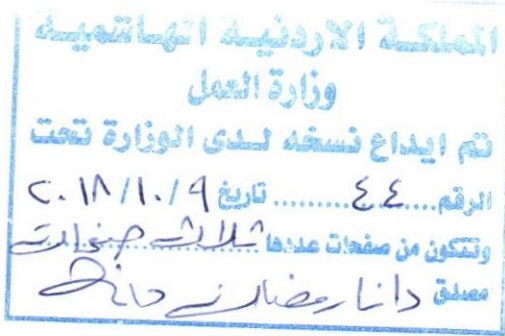 المملكة الاردنية الهاشمية
وزارة العمل
تم ايداع نسخه لدى الوزارة تحت
الرقم....٤٤.......... تاريخ ٢٠١٨/١٠/٩
وتتكون من صفحات عددها ثلاث صفحات
مصدق دانا رمضان